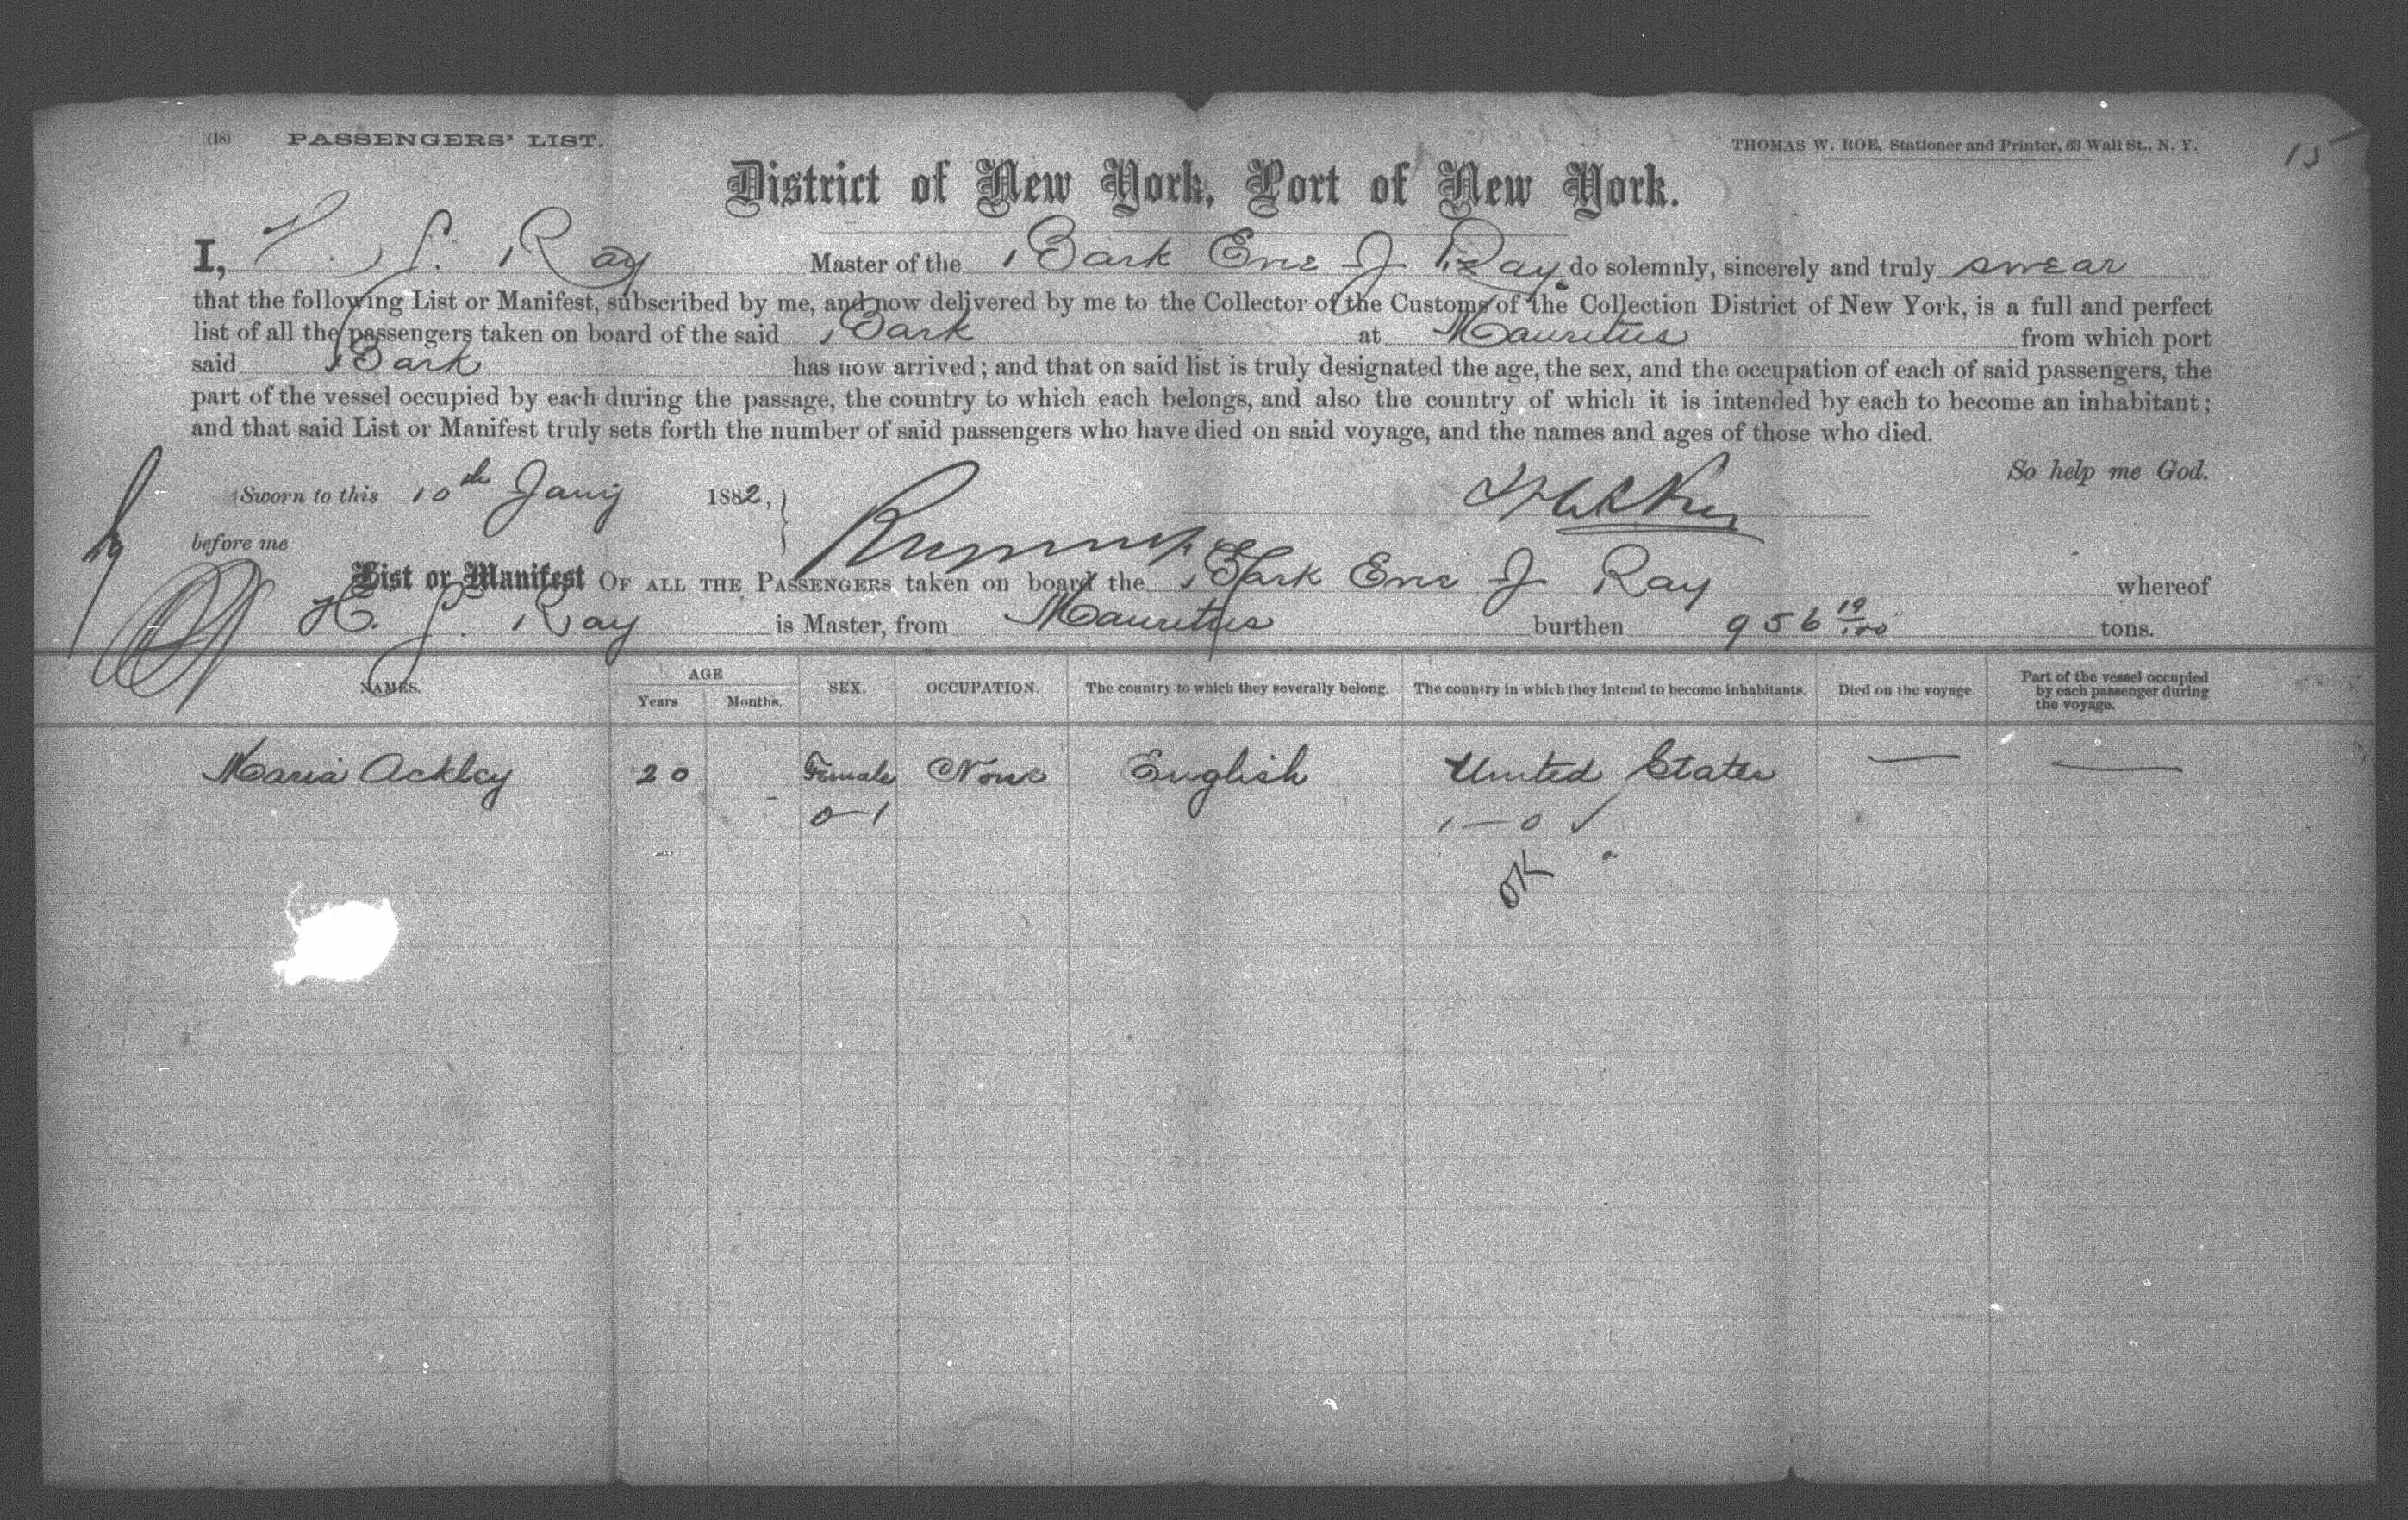 (18) PASSENGERS' LIST. THOMAS W. ROE, Stationer and Printer, 63 Wall St., N. Y. 15
District of New York, Port of New York.
I, H. J. Ray Master of the Bark Evie J Ray do solemnly, sincerely and truly swear
that the following List or Manifest, subscribed by me, and now delivered by me to the Collector of the Customs of the Collection District of New York, is a full and perfect
list of all the passengers taken on board of the said Bark at Mauritus from which port
said Bark has now arrived; and that on said list is truly designated the age, the sex, and the occupation of each of said passengers, the
part of the vessel occupied by each during the passage, the country to which each belongs, and also the country of which it is intended by each to become an inhabitant;
and that said List or Manifest truly sets forth the number of said passengers who have died on said voyage, and the names and ages of those who died.
So help me God.
Sworn to this 10th Jany 1882,
before me
List or Manifest OF ALL THE PASSENGERS taken on board the Bark Evie J Ray whereof
H. J. Ray is Master, from Mauritus burthen 956 19/100 tons.
NAMES. AGE Years Months. SEX. OCCUPATION. The country to which they severally belong. The country in which they intend to become inhabitants. Died on the voyage. Part of the vessel occupied by each passenger during the voyage.
Maria Ackley 20 Female None English United States — —
0-1 1-0 ✓
OK